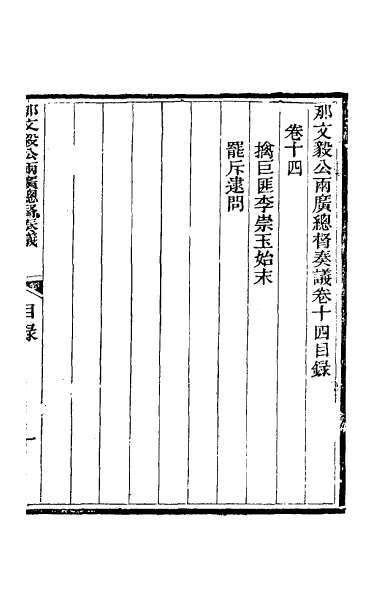 那文毅公兩廣總督奏議卷十四目錄
卷十四
擒巨匪李崇玉始末
罷斥逮問
那文毅公兩廣總督奏議
目錄